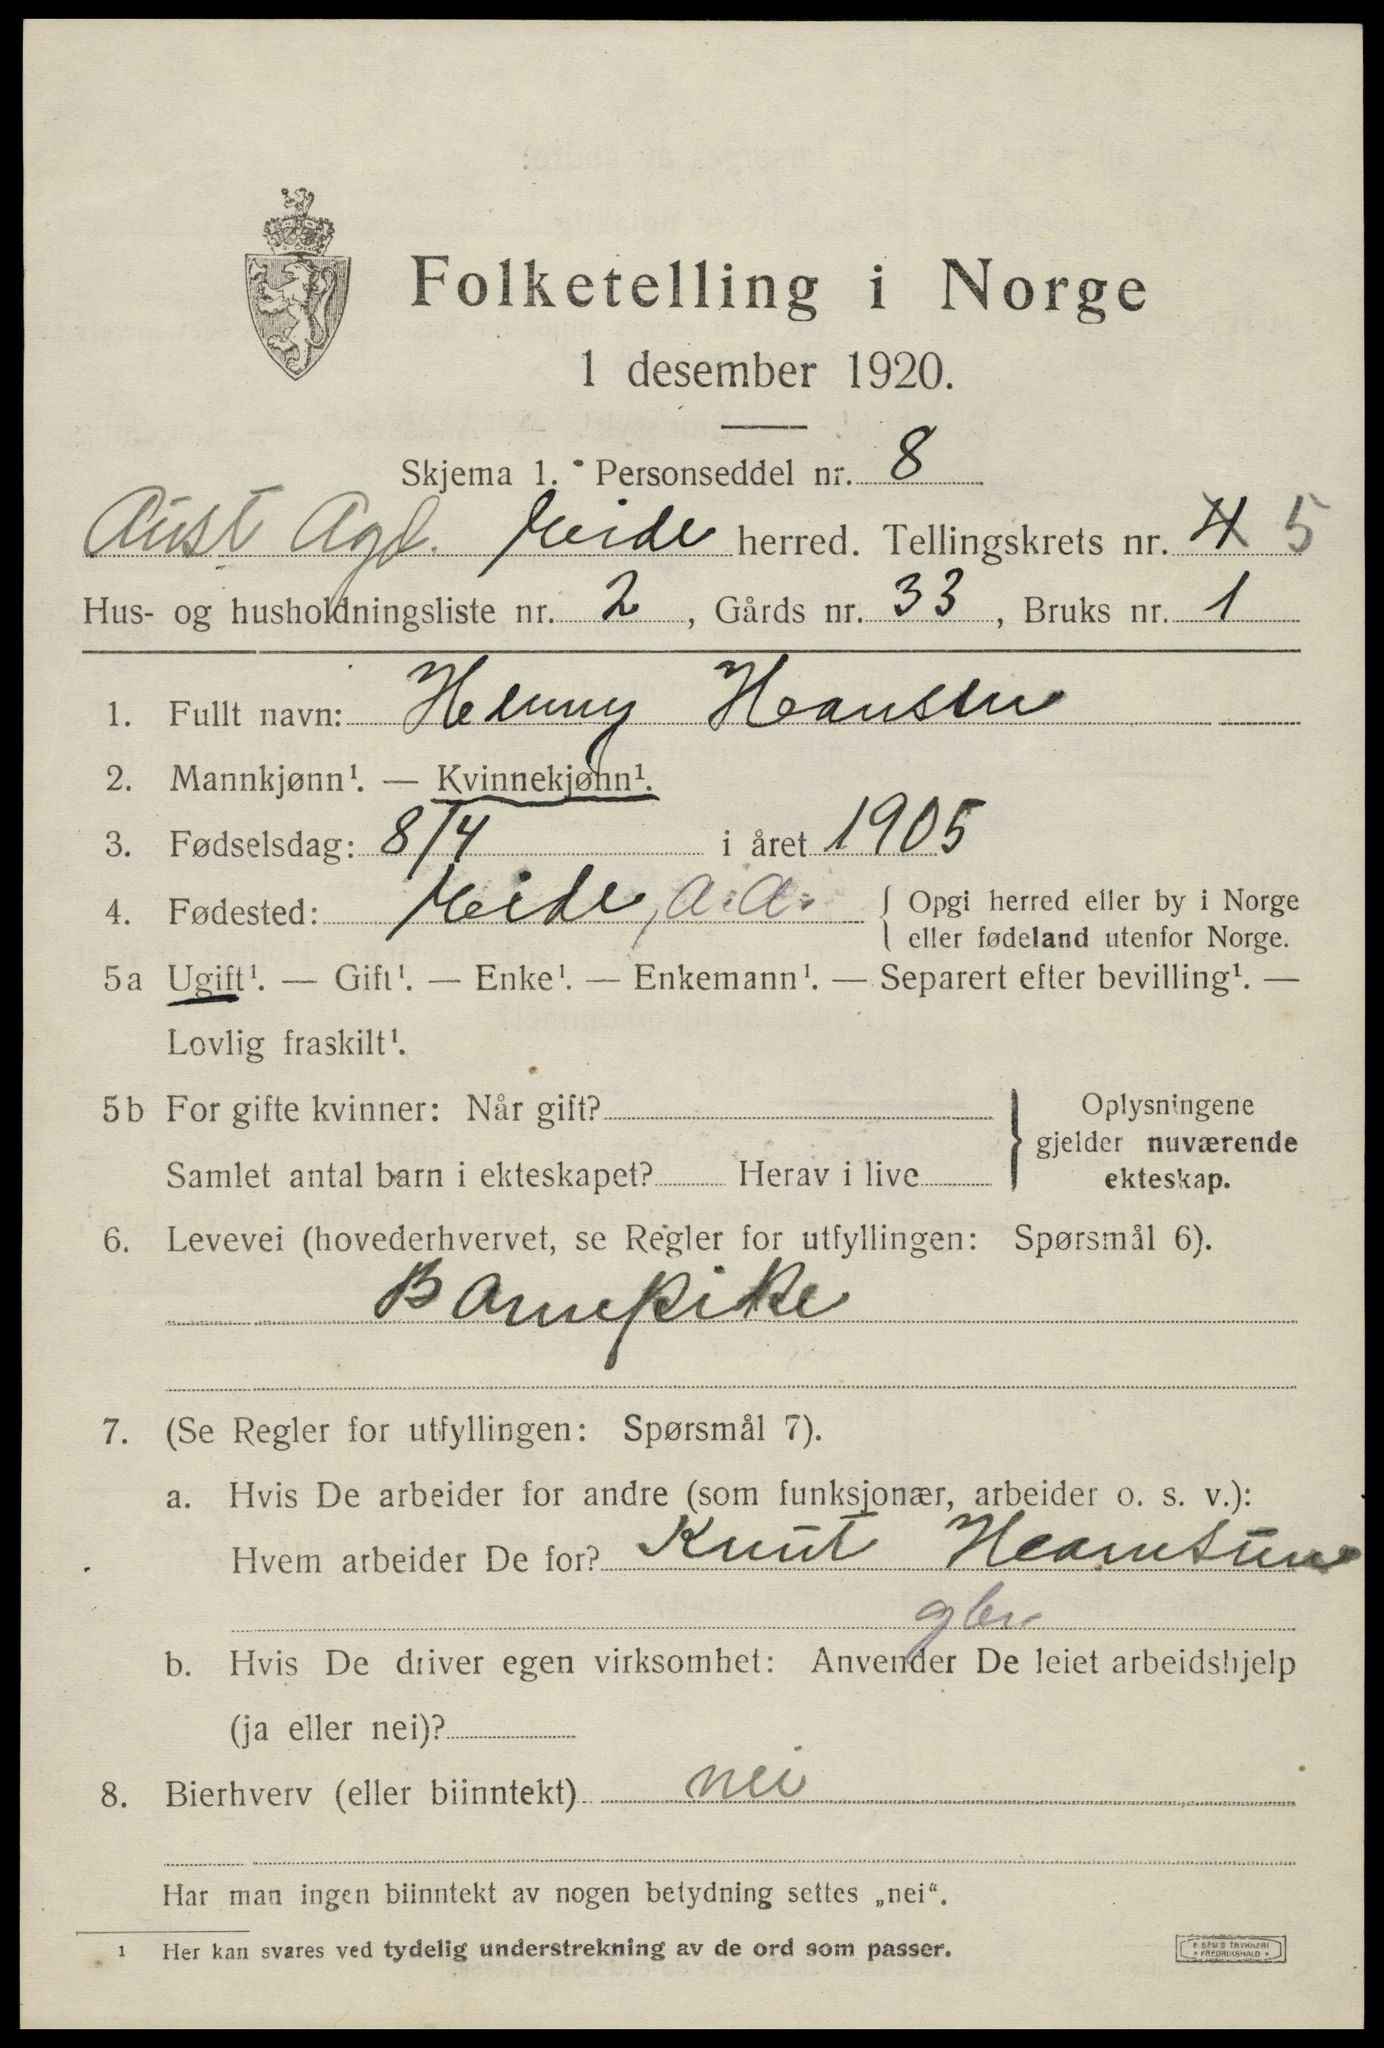 Folketelling i Norge
1 desember 1920.
Skjema 1. Personseddel nr. 8
Aust Agd. Eide herred. Tellingskrets nr. 4 5
Hus- og husholdningsliste nr. 2, Gårds nr. 33, Bruks nr. 1
1. Fullt navn: Henny Hansen
2. Mannkjønn¹. — Kvinnekjønn¹.
3. Fødselsdag: 8/4 i året 1905
4. Fødested: Eide, A.A. { Opgi herred eller by i Norge
eller fødeland utenfor Norge.
5a Ugift¹. — Gift¹. — Enke¹. — Enkemann¹. — Separert efter bevilling¹. —
Lovlig fraskilt¹.
5b For gifte kvinner: Når gift?
Samlet antal barn i ekteskapet? Herav i live
} Oplysningene
gjelder nuværende
ekteskap.
6. Levevei (hovederhvervet, se Regler for utfyllingen: Spørsmål 6).
Barnepike
7. (Se Regler for utfyllingen: Spørsmål 7).
a. Hvis De arbeider for andre (som funksjonær, arbeider o. s. v.):
Hvem arbeider De for? Knut Hamsun
gbr
b. Hvis De driver egen virksomhet: Anvender De leiet arbeidshjelp
(ja eller nei)?
8. Bierhverv (eller biinntekt) nei
Har man ingen biinntekt av nogen betydning settes „nei“.
¹ Her kan svares ved tydelig understrekning av de ord som passer.
E SEM'S TRYKKERI
FREDRIKSHALD